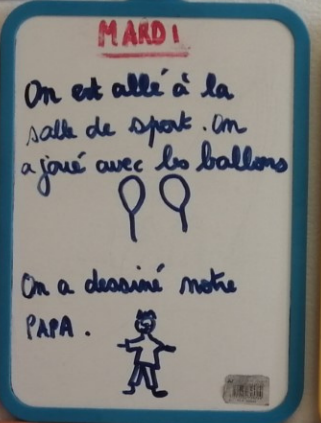 MARDI
On est allé à la
salle de sport. On
a joué avec les ballons
On a dessiné notre
PAPA.